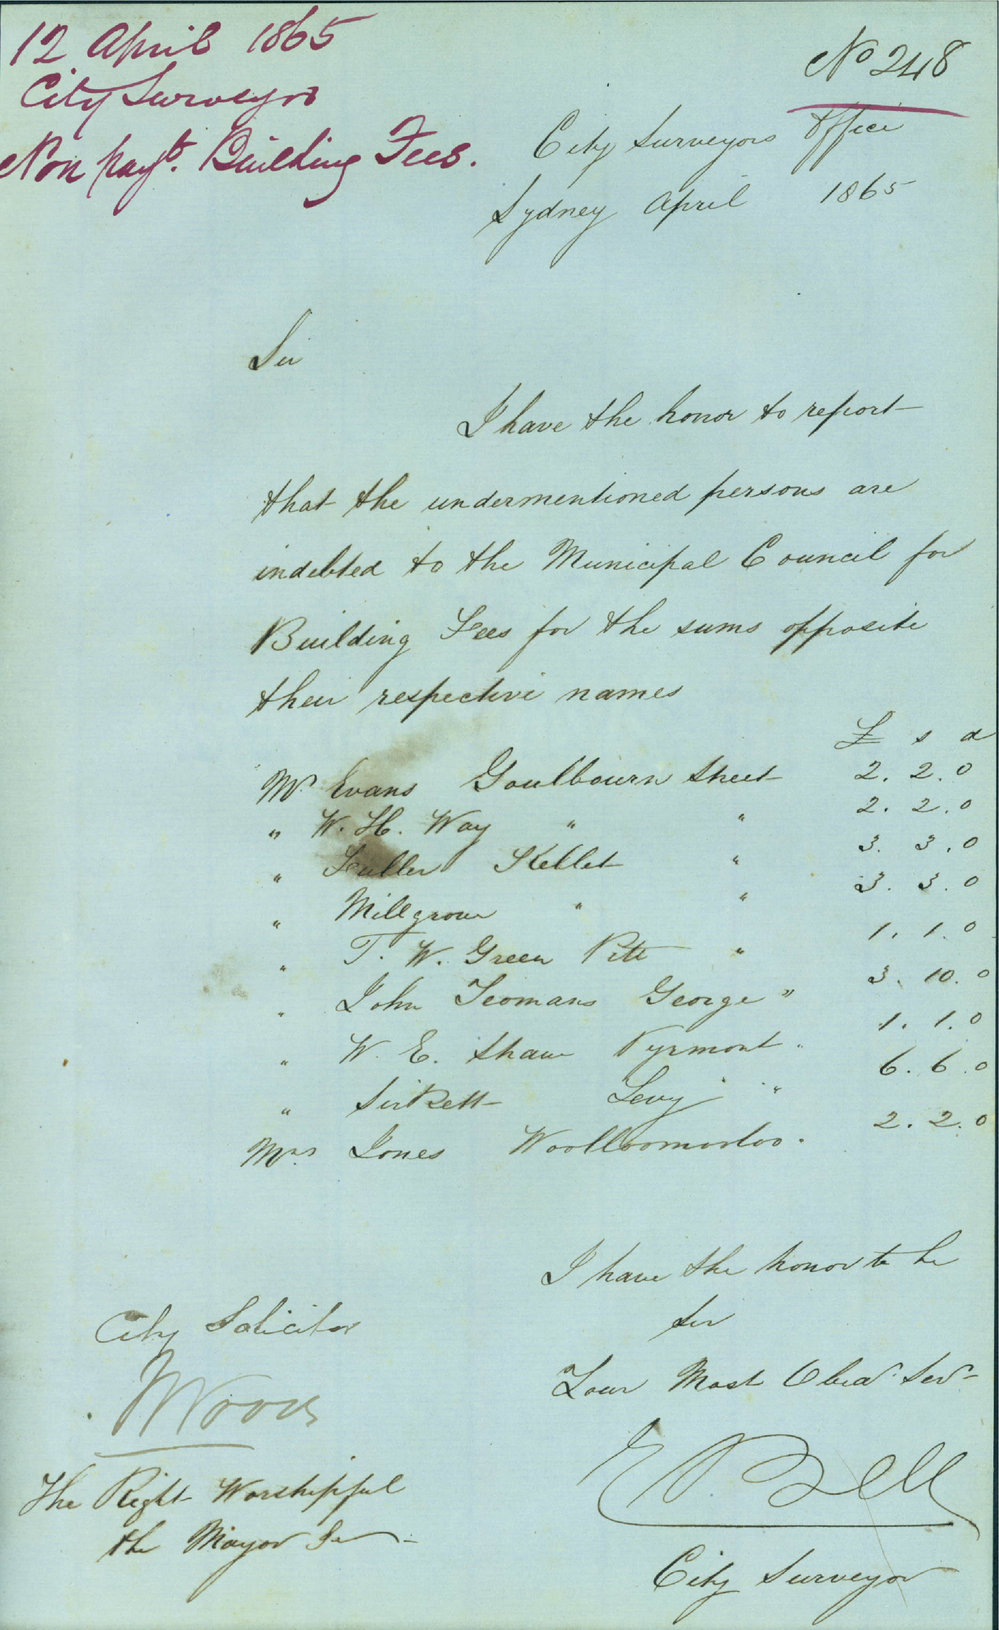 12 April 1865
City Surveyor
Non payt. Building Fees.
No 248
City Surveyors Office
Sydney April 1865
Sir
I have the honor to report
that the undermentioned persons are
indebted to the Municipal Council for
Building Fees for the sums opposite
their respective names
£ s d
Mr Evans Goulbourn Street 2. 2. 0
" W. H. Way " " 2. 2. 0
" Fuller Kellet " 3. 3. 0
" Millgrove " " 3. 3. 0
" T. W. Green Pitt " 1. 1. 0
" John Yeomans George " 3. 10. 0
" W. E. Shaw Pyrmont " 1. 1. 0
" Levy " 6. 6. 0
Mrs Jones Woolloomooloo. 2. 2. 0
I have the honor to be
Sir
Your Most Obed. Ser
E Bell
City Surveyor
City Solicitor
The Right Worshipful
the Mayor